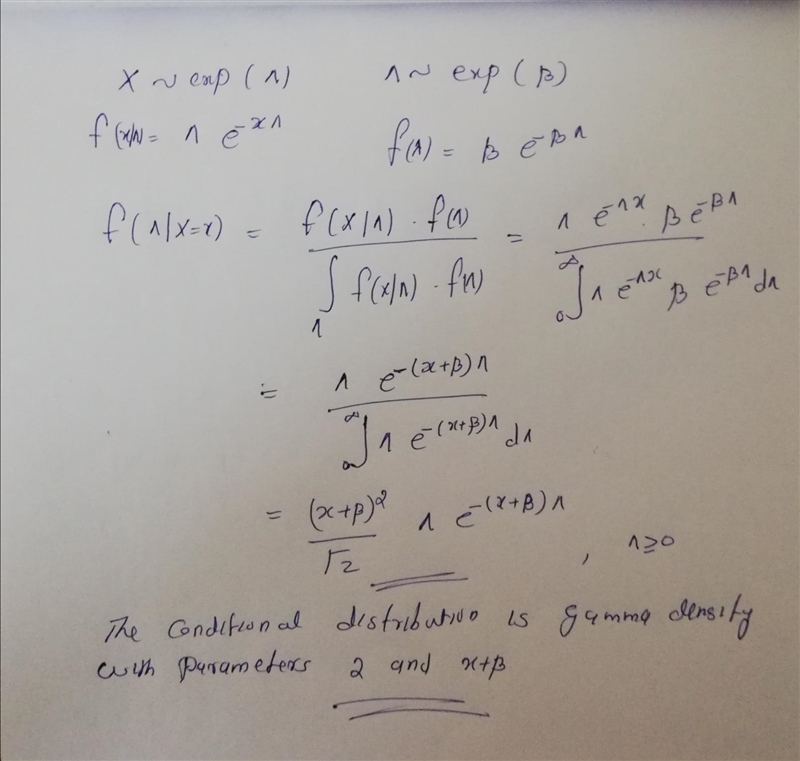 X ~ exp(Λ)    Λ ~ exp(β)
f(x/Λ) = Λ e^{-xΛ}    f(Λ) = β e^{-βΛ}
f(Λ/X=x) = \frac{f(X/Λ) · f(Λ)}{∫_Λ f(X/Λ) · f(Λ)} = \frac{Λ e^{-Λx} · β e^{-βΛ}}{∫_0^∞ Λ e^{-Λx} β e^{-βΛ} dΛ}
= \frac{Λ e^{-(x+β)Λ}}{∫_0^∞ Λ e^{-(x+β)Λ} dΛ}
= \frac{(x+β)^2}{Γ2} Λ e^{-(x+β)Λ} , Λ≥0
The Conditional distribution is gamma density
with Parameters 2 and x+β